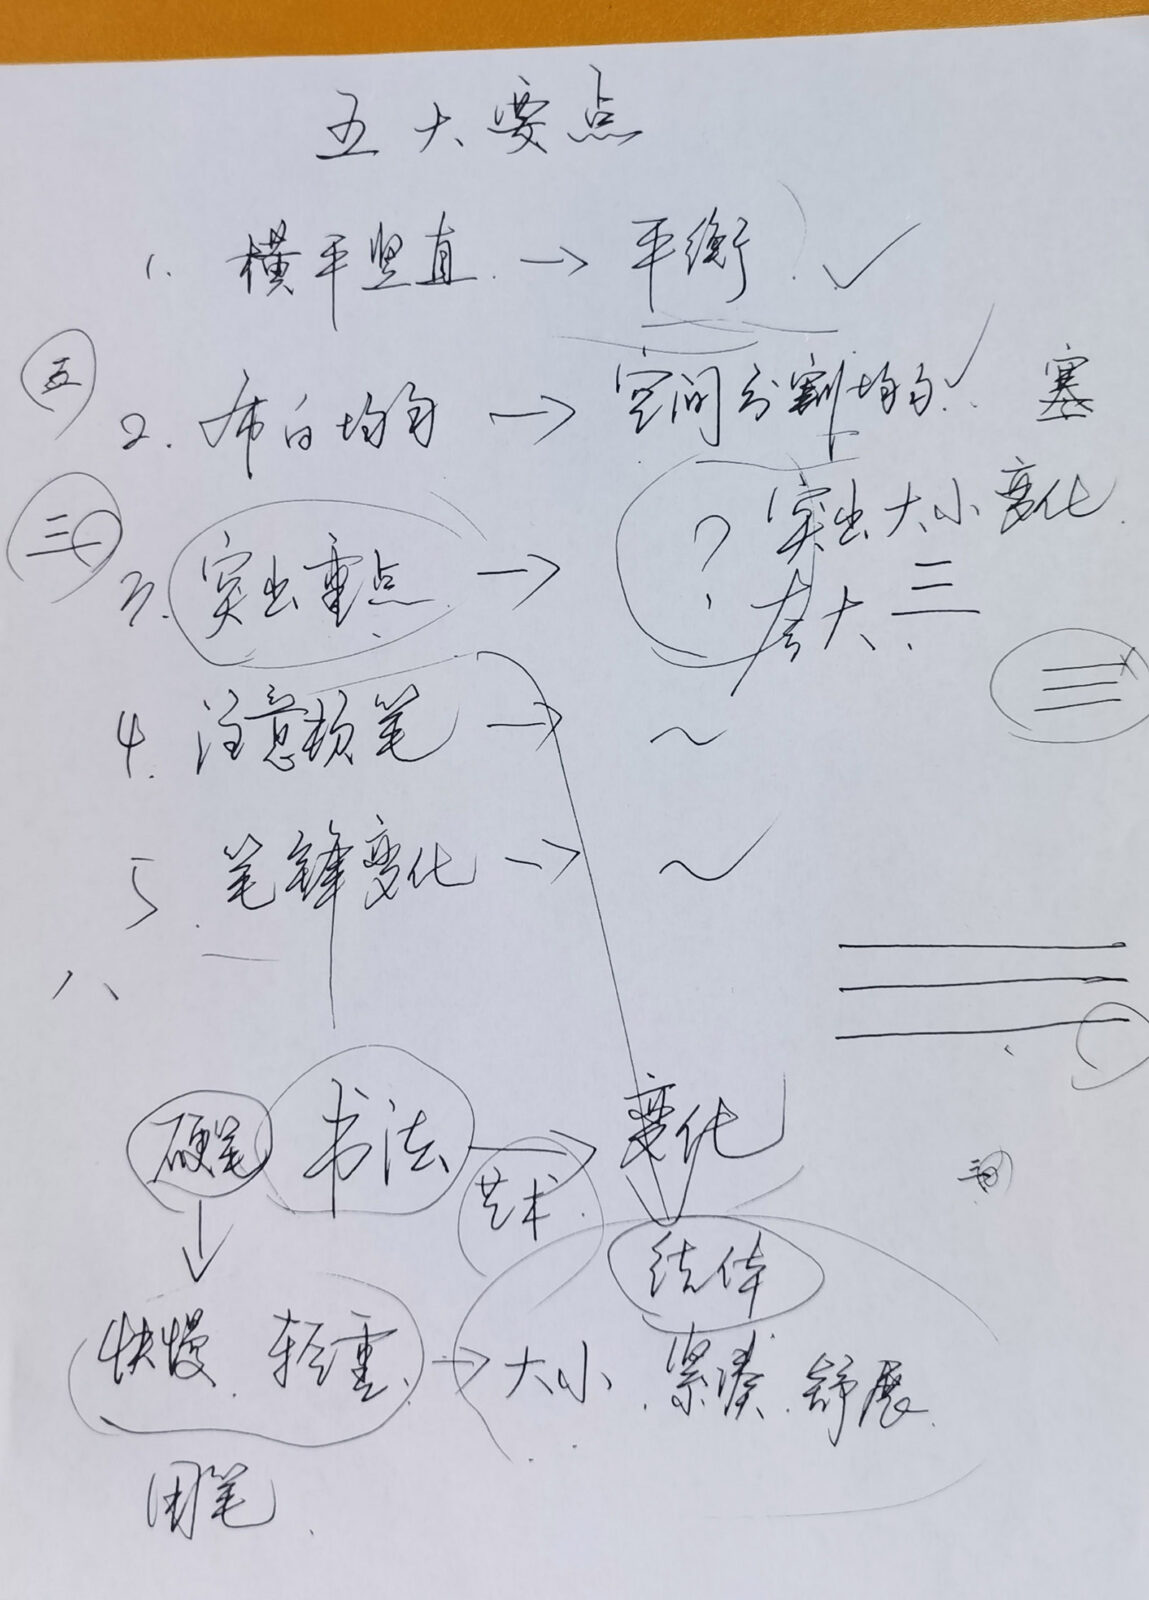 五大要点
1. 横平竖直 → 平衡 ✓
五
2. 布白均匀 → 空间分割均匀 ✓ 塞
三
3. 突出重点 → ? 突出大小变化
夸大 三
4. 注意频笔 → ~
5. 笔锋变化 → ~
八
硬笔 书法 → 变化
艺术
结体
快慢 轻重 → 大小 紧凑 舒展
用笔